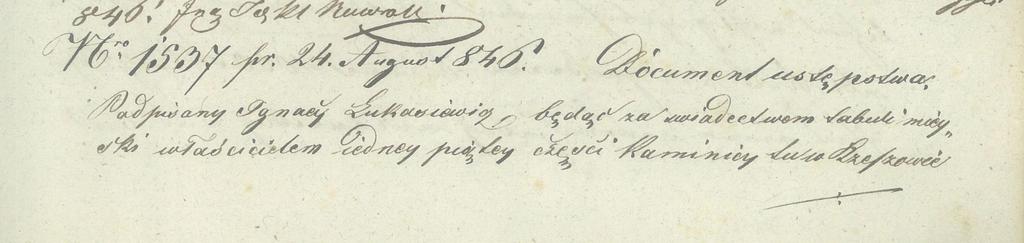 846.
Nro 1537 pr. 24. August 846. Document ustępstwa.
Podpisany Ignacy Łukasiewicz, będąc za swiadectwem tabuli miey„
ski właścicielem iedney piątey części Kaminicy tu w Rzeszowie